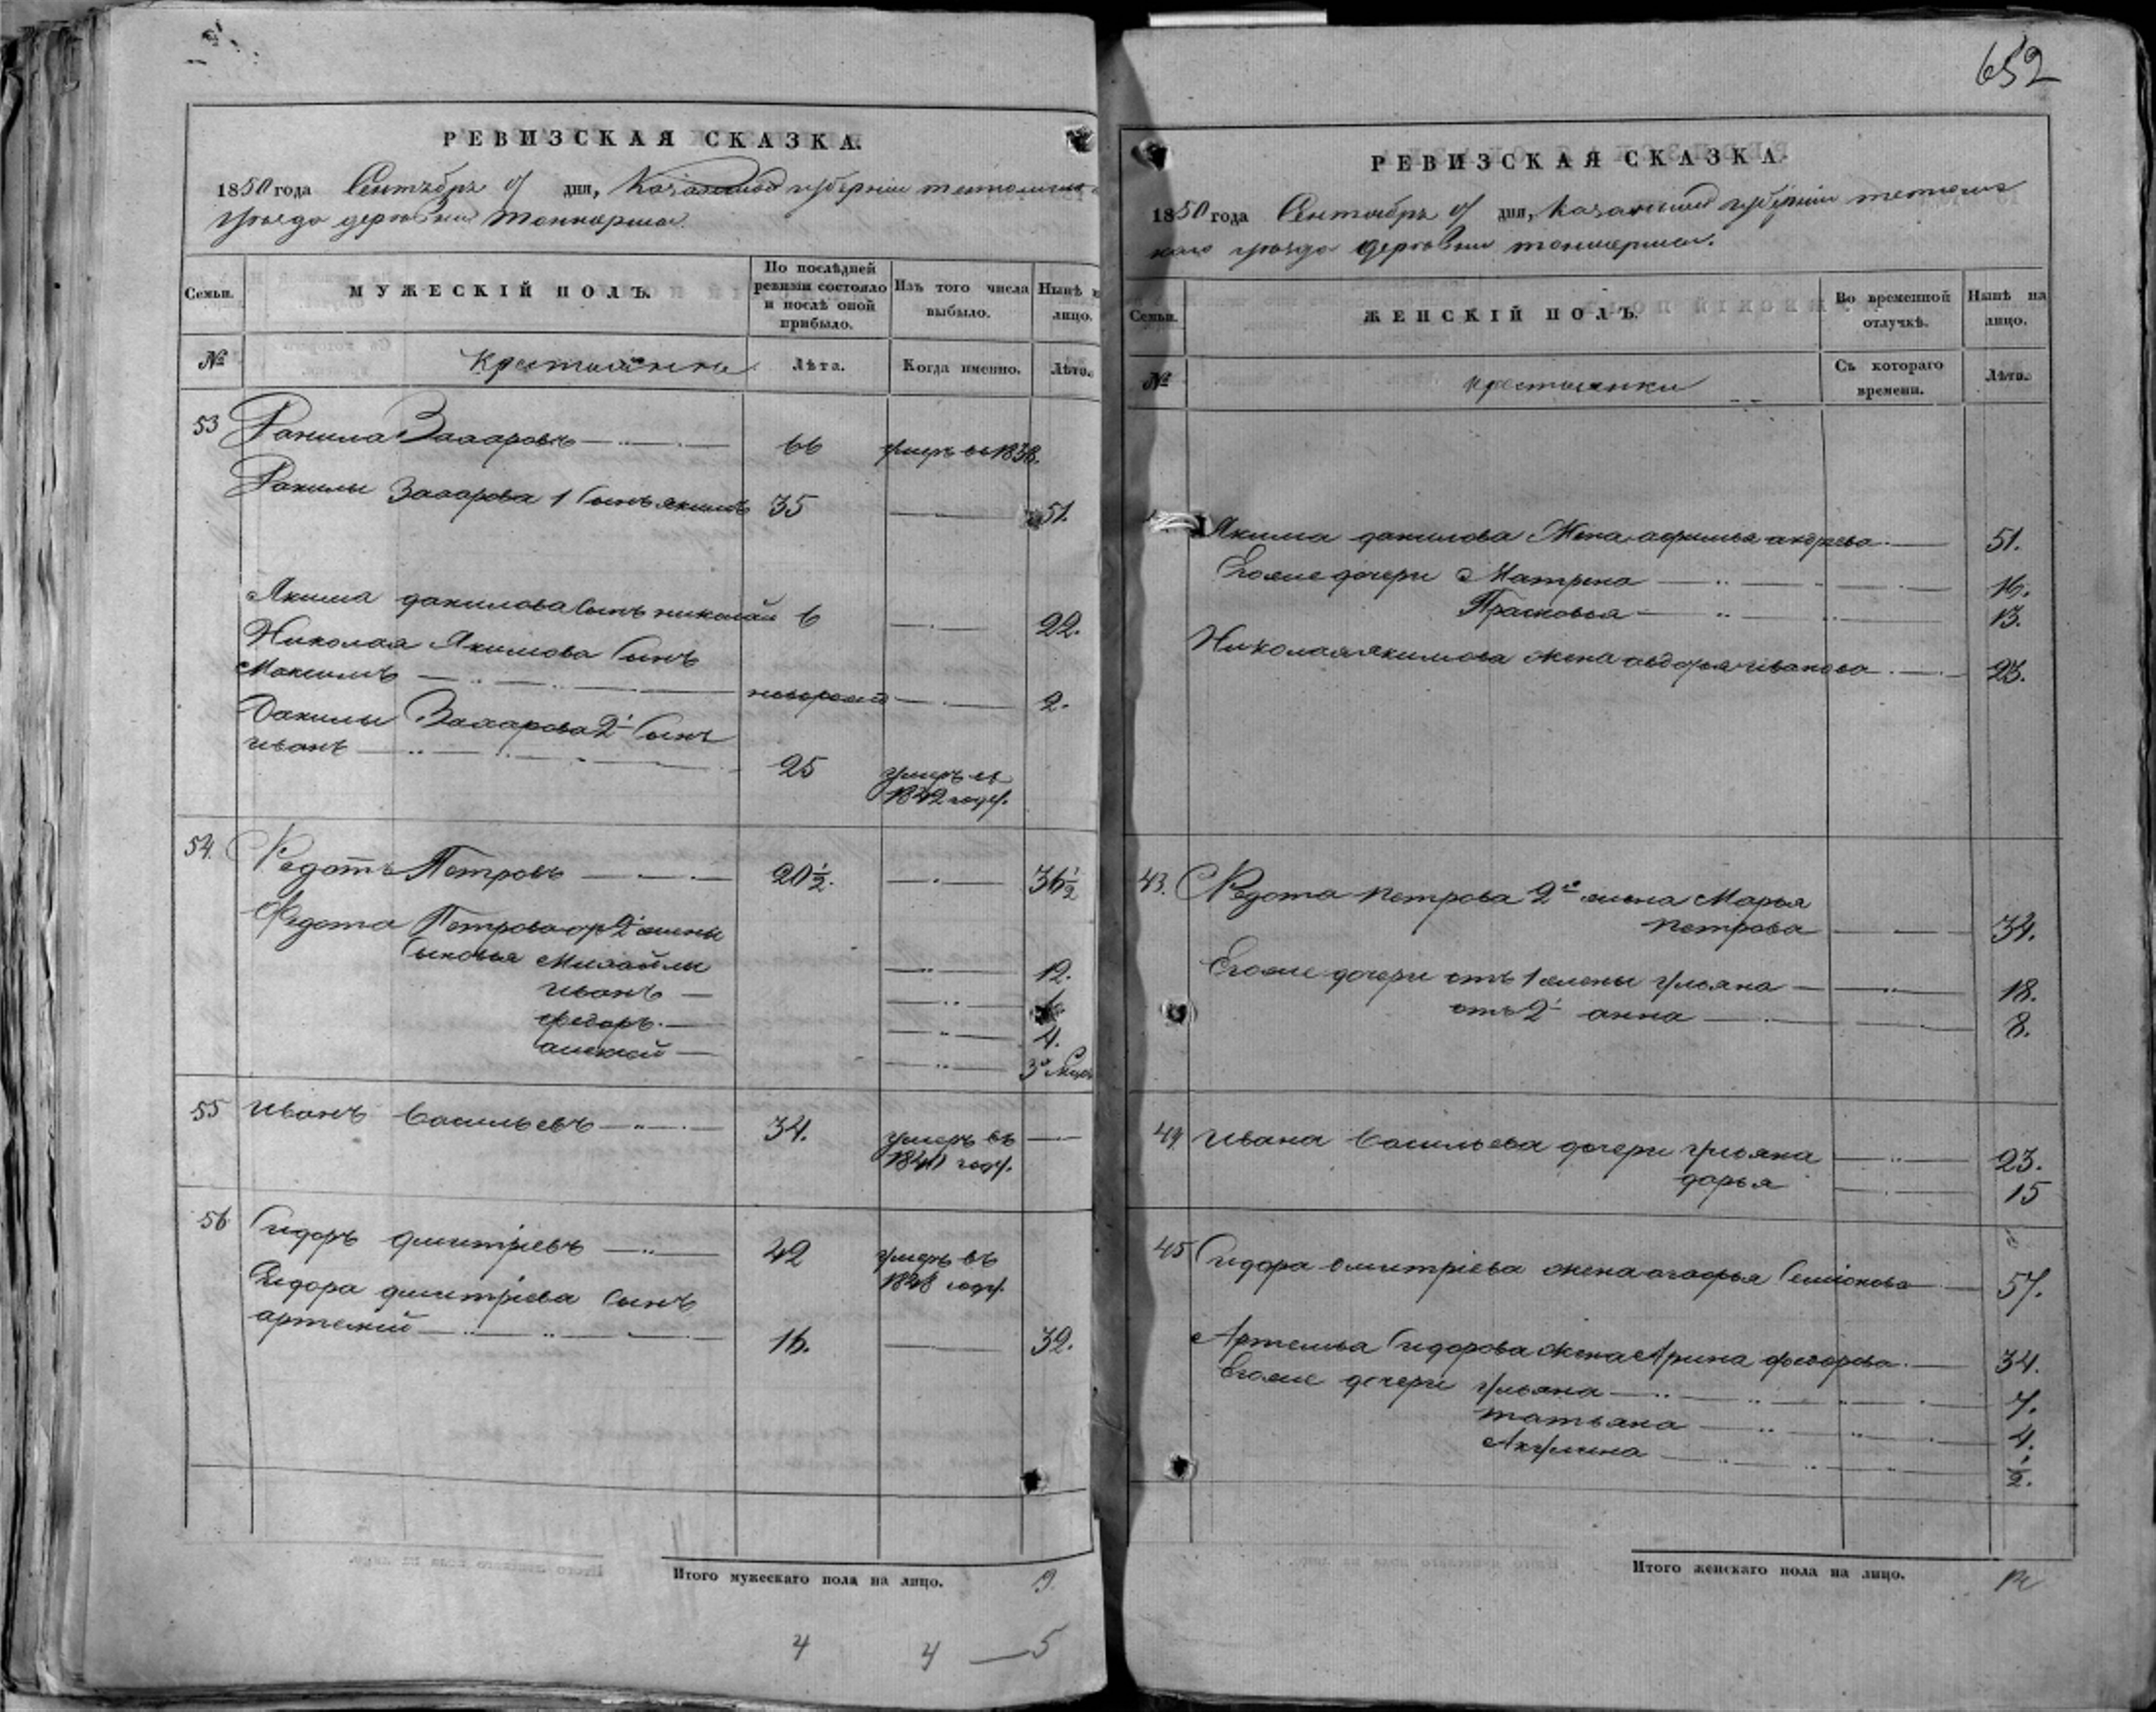 652
РЕВИЗСКАЯ СКАЗКА.
1850 года Сентября дня, Казанской губернии тетюшска
уезда деревни
Семьи. МУЖЕСКІЙ ПОЛЪ. По послѣдней ревизіи состояло и послѣ оной прибыло. Изъ того числа выбыло. Нынѣ на лицо.
№ Крестьянъ Лѣта. Когда именно. Лѣта.
53 Данила Захаровъ 66 умеръ въ 1838.
Данилы Захарова 1 Сынъ якимъ 35 51.
Якима данилова Сынъ николай 6 22.
Николая Якимова Сынъ
Максимъ новорожд 2.
Данилы Захарова 2й Сынъ
иванъ 25 умеръ въ
1842 году.
54. Федотъ Петровъ 20½. 36½
Федота Петрова от 2й жены
Сыновья Михайлы 12.
иванъ 6
федоръ 4.
алексей 3х
55 Иванъ Васильевъ 34. умеръ въ
1840 году.
56 Сидоръ дмитріевъ 42 умеръ въ
1848 году.
Сидора дмитріева Сынъ
артемій 16. 32.
Итого мужескаго пола на лицо. 9.
4 4 — 5
РЕВИЗСКАЯ СКАЗКА.
1850 года Сентября дня, Казанской губерніи тетюшс
каго уезда деревни
Семьи. ЖЕНСКІЙ ПОЛЪ. Во временной отлучкѣ. Нынѣ на лицо.
№ крестьянки Съ котораго времени. Лѣта.
Якима данилова Жена афимья андреева 51.
Егоже дочери Матрена 16.
Прасковья 13.
Николая якимова жена авдотья иванова 23.
43. Федота петрова 2я жена Марья
петрова 34.
Егоже дочери отъ 1 жены ульяна 18.
отъ 2й анна 8.
44 Ивана Васильева дочери ульяна 23.
дарья 15
45 Сидора дмитріева жена агафья Семіонова 57.
Артемья Сидорова жена Арина федорова 34.
Егоже дочери ульяна 7.
татьяна 4.
Акулина ½.
Итого женскаго пола на лицо.